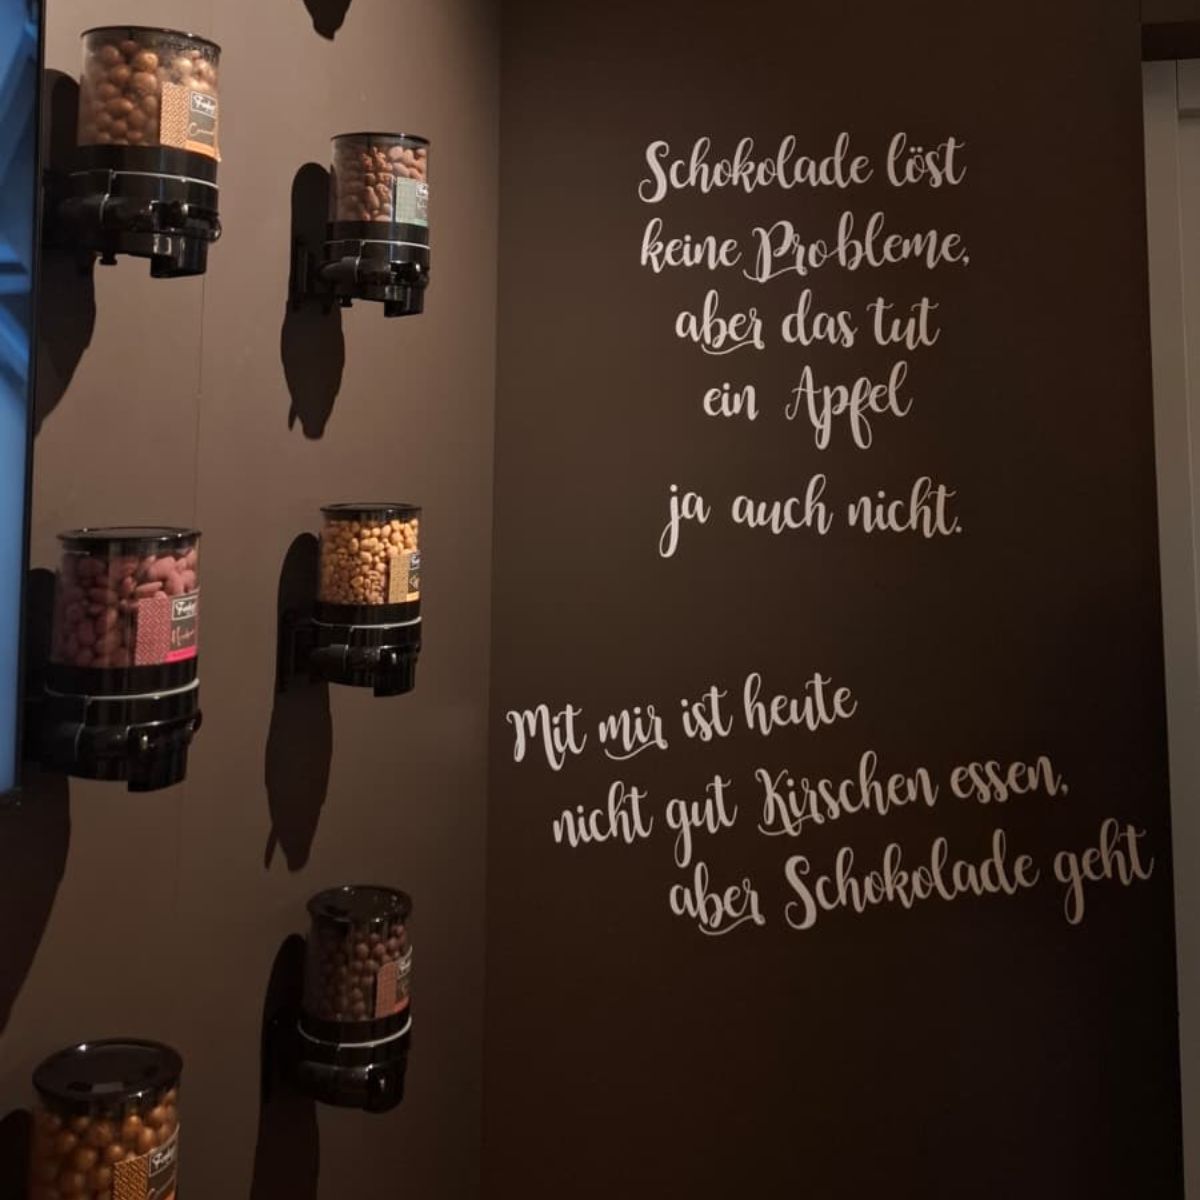 Schokolade löst
keine Probleme,
aber das tut
ein Apfel
ja auch nicht.
Mit mir ist heute
nicht gut Kirschen essen,
aber Schokolade geht